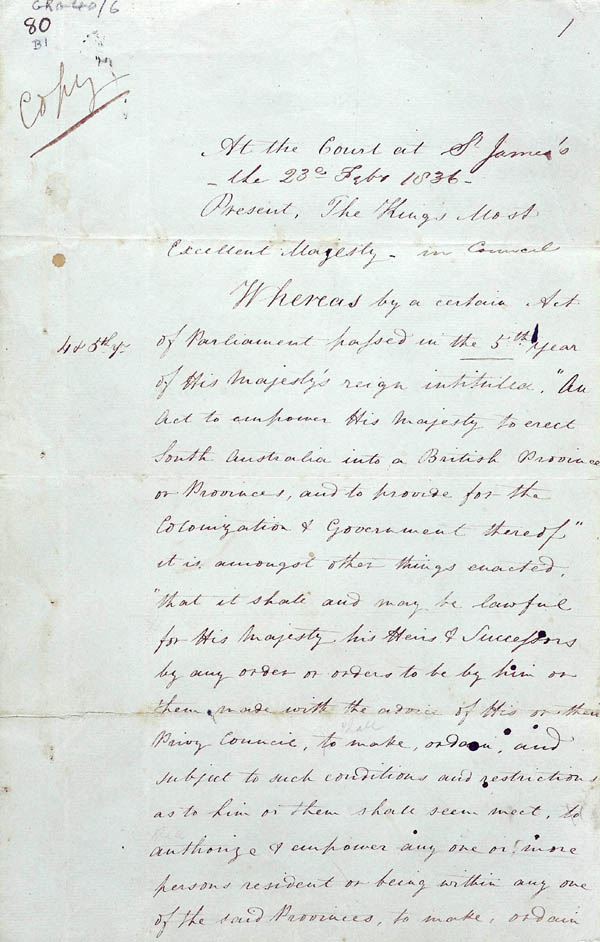 GRG 40/6
80
B1
1
Copy
At the Court at St James's
- the 23rd Feby 1836 -
Present, The Kings Most
Excellent Majesty - in Council
Whereas by a certain Act
4 & 5th
of Parliament passed in the 5th year
of His Majesty's reign intituled, "An
Act to empower His Majesty to erect
South Australia into a British Province
or Provinces, and to provide for the
Colonization & Government thereof"
it is amongst other things enacted,
"that it shall and may be lawful
for His Majesty his Heirs & Successors
by any order or orders to be by him or
them made with the advice of His or their
shall
Privy Council, to make, ordain, and
subject to such conditions and restrictions
as to him or them shall seem meet, to
authorize & empower any one or more
persons resident or being within any one
of the said Provinces, to make, ordain